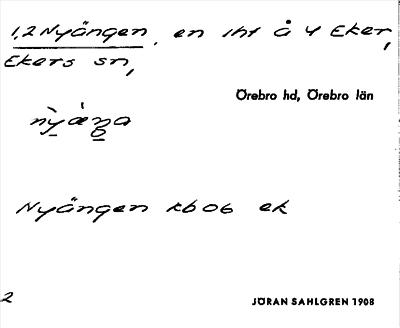 1,2 Nyängen, en lht å 4 Eker,
Ekers sn,
Örebro hd, Örebro län
nỳäŋa
Nyängen kb 06 ek
2
JÖRAN SAHLGREN 1908